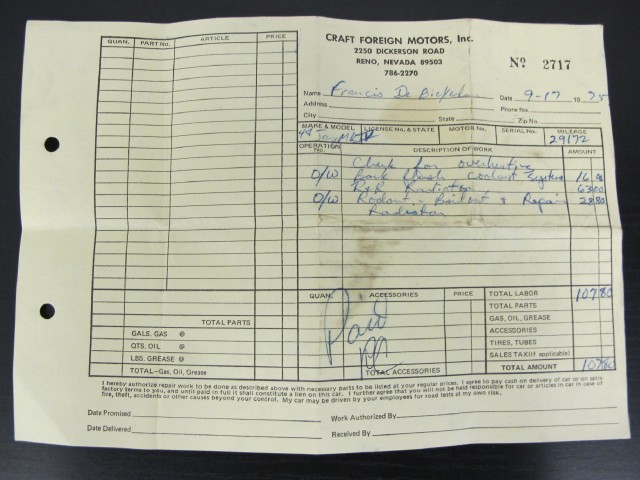 CRAFT FOREIGN MOTORS, Inc.
2250 DICKERSON ROAD
RENO, NEVADA 89503
786-2270
No 2717
QUAN. PART No. ARTICLE PRICE
Name Francis De
Date 9-17 1975
Address
Phone No.
City State Zip No
MAKE & MODEL LICENSE No. & STATE MOTOR No. SERIAL No. MILEAGE
29172
OPERATION No. DESCRIPTION OF WORK AMOUNT
Check for overheating
O/W Back flush Coolant System 16.00
R&R Radiator 63.00
O/W Rodout - Boilout & Repair 28.80
Radiator
QUAN. ACCESSORIES PRICE
TOTAL LABOR 107.80
TOTAL PARTS
GAS, OIL, GREASE
ACCESSORIES
TIRES, TUBES
SALES TAX (if applicable)
TOTAL AMOUNT 107.80
Paid
TOTAL PARTS
GALS. GAS @
QTS. OIL @
LBS. GREASE @
TOTAL-Gas, Oil, Grease
TOTAL ACCESSORIES
I hereby authorize repair work to be done as described above with necessary parts to be listed at your regular prices. I agree to pay cash on delivery of car or on satis-
factory terms to you, and until paid in full it shall constitute a lien on this car. I further agree that you will not be held responsible for car or articles in car in case of
fire, theft, accidents or other causes beyond your control. My car may be driven by your employees for road tests at my own risk.
Date Promised
Work Authorized By
Date Delivered
Received By